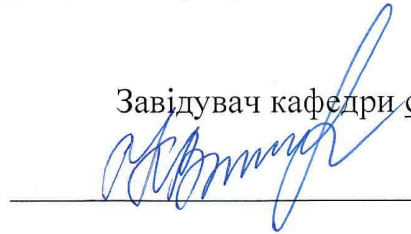 Завідувач кафедри